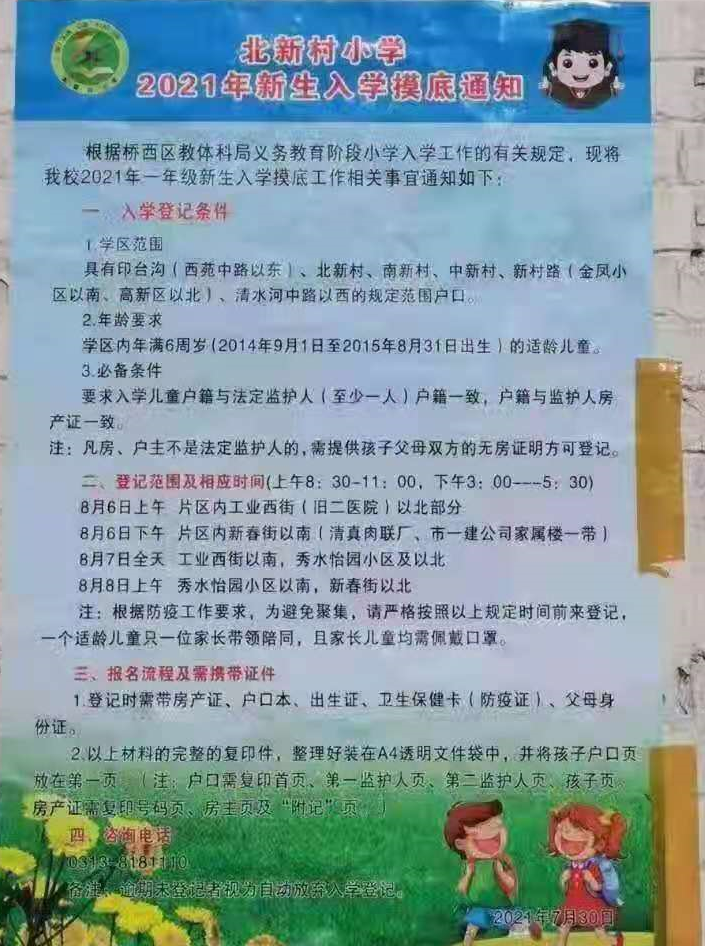 北新村小学
2021年新生入学摸底通知
根据桥西区教体科局义务教育阶段小学入学工作的有关规定，现将
我校2021年一年级新生入学摸底工作相关事宜通知如下：
一、入学登记条件
1.学区范围
具有印台沟（西苑中路以东）、北新村、南新村、中新村、新村路（金凤小
区以南、高新区以北）、清水河中路以西的规定范围户口。
2.年龄要求
学区内年满6周岁(2014年9月1日至2015年8月31日出生）的适龄儿童。
3.必备条件
要求入学儿童户籍与法定监护人（至少一人）户籍一致，户籍与监护人房
产证一致。
注：凡房、户主不是法定监护人的,需提供孩子父母双方的无房证明方可登记。
二、登记范围及相应时间(上午8：30-11：00，下午3：00---5：30)
8月6日上午 片区内工业西街（旧二医院）以北部分
8月6日下午 片区内新春街以南（清真肉联厂、市一建公司家属楼一带）
8月7日全天 工业西街以南，秀水怡园小区及以北
8月8日上午 秀水怡园小区以南，新春街以北
注：根据防疫工作要求，为避免聚集，请严格按照以上规定时间前来登记，
一个适龄儿童只一位家长带领陪同，且家长儿童均需佩戴口罩。
三、报名流程及需携带证件
1.登记时需带房产证、户口本、出生证、卫生保健卡（防疫证）、父母身
份证。
2.以上材料的完整的复印件，整理好装在A4透明文件袋中，并将孩子户口页
放在第一页。（注：户口需复印首页、第一监护人页、第二监护人页、孩子页。
房产证需复印号码页、房主页及“附记”页。）
四、咨询电话
0313-8181110
备注、逾期未登记者视为自动放弃入学登记。
2021年7月30日